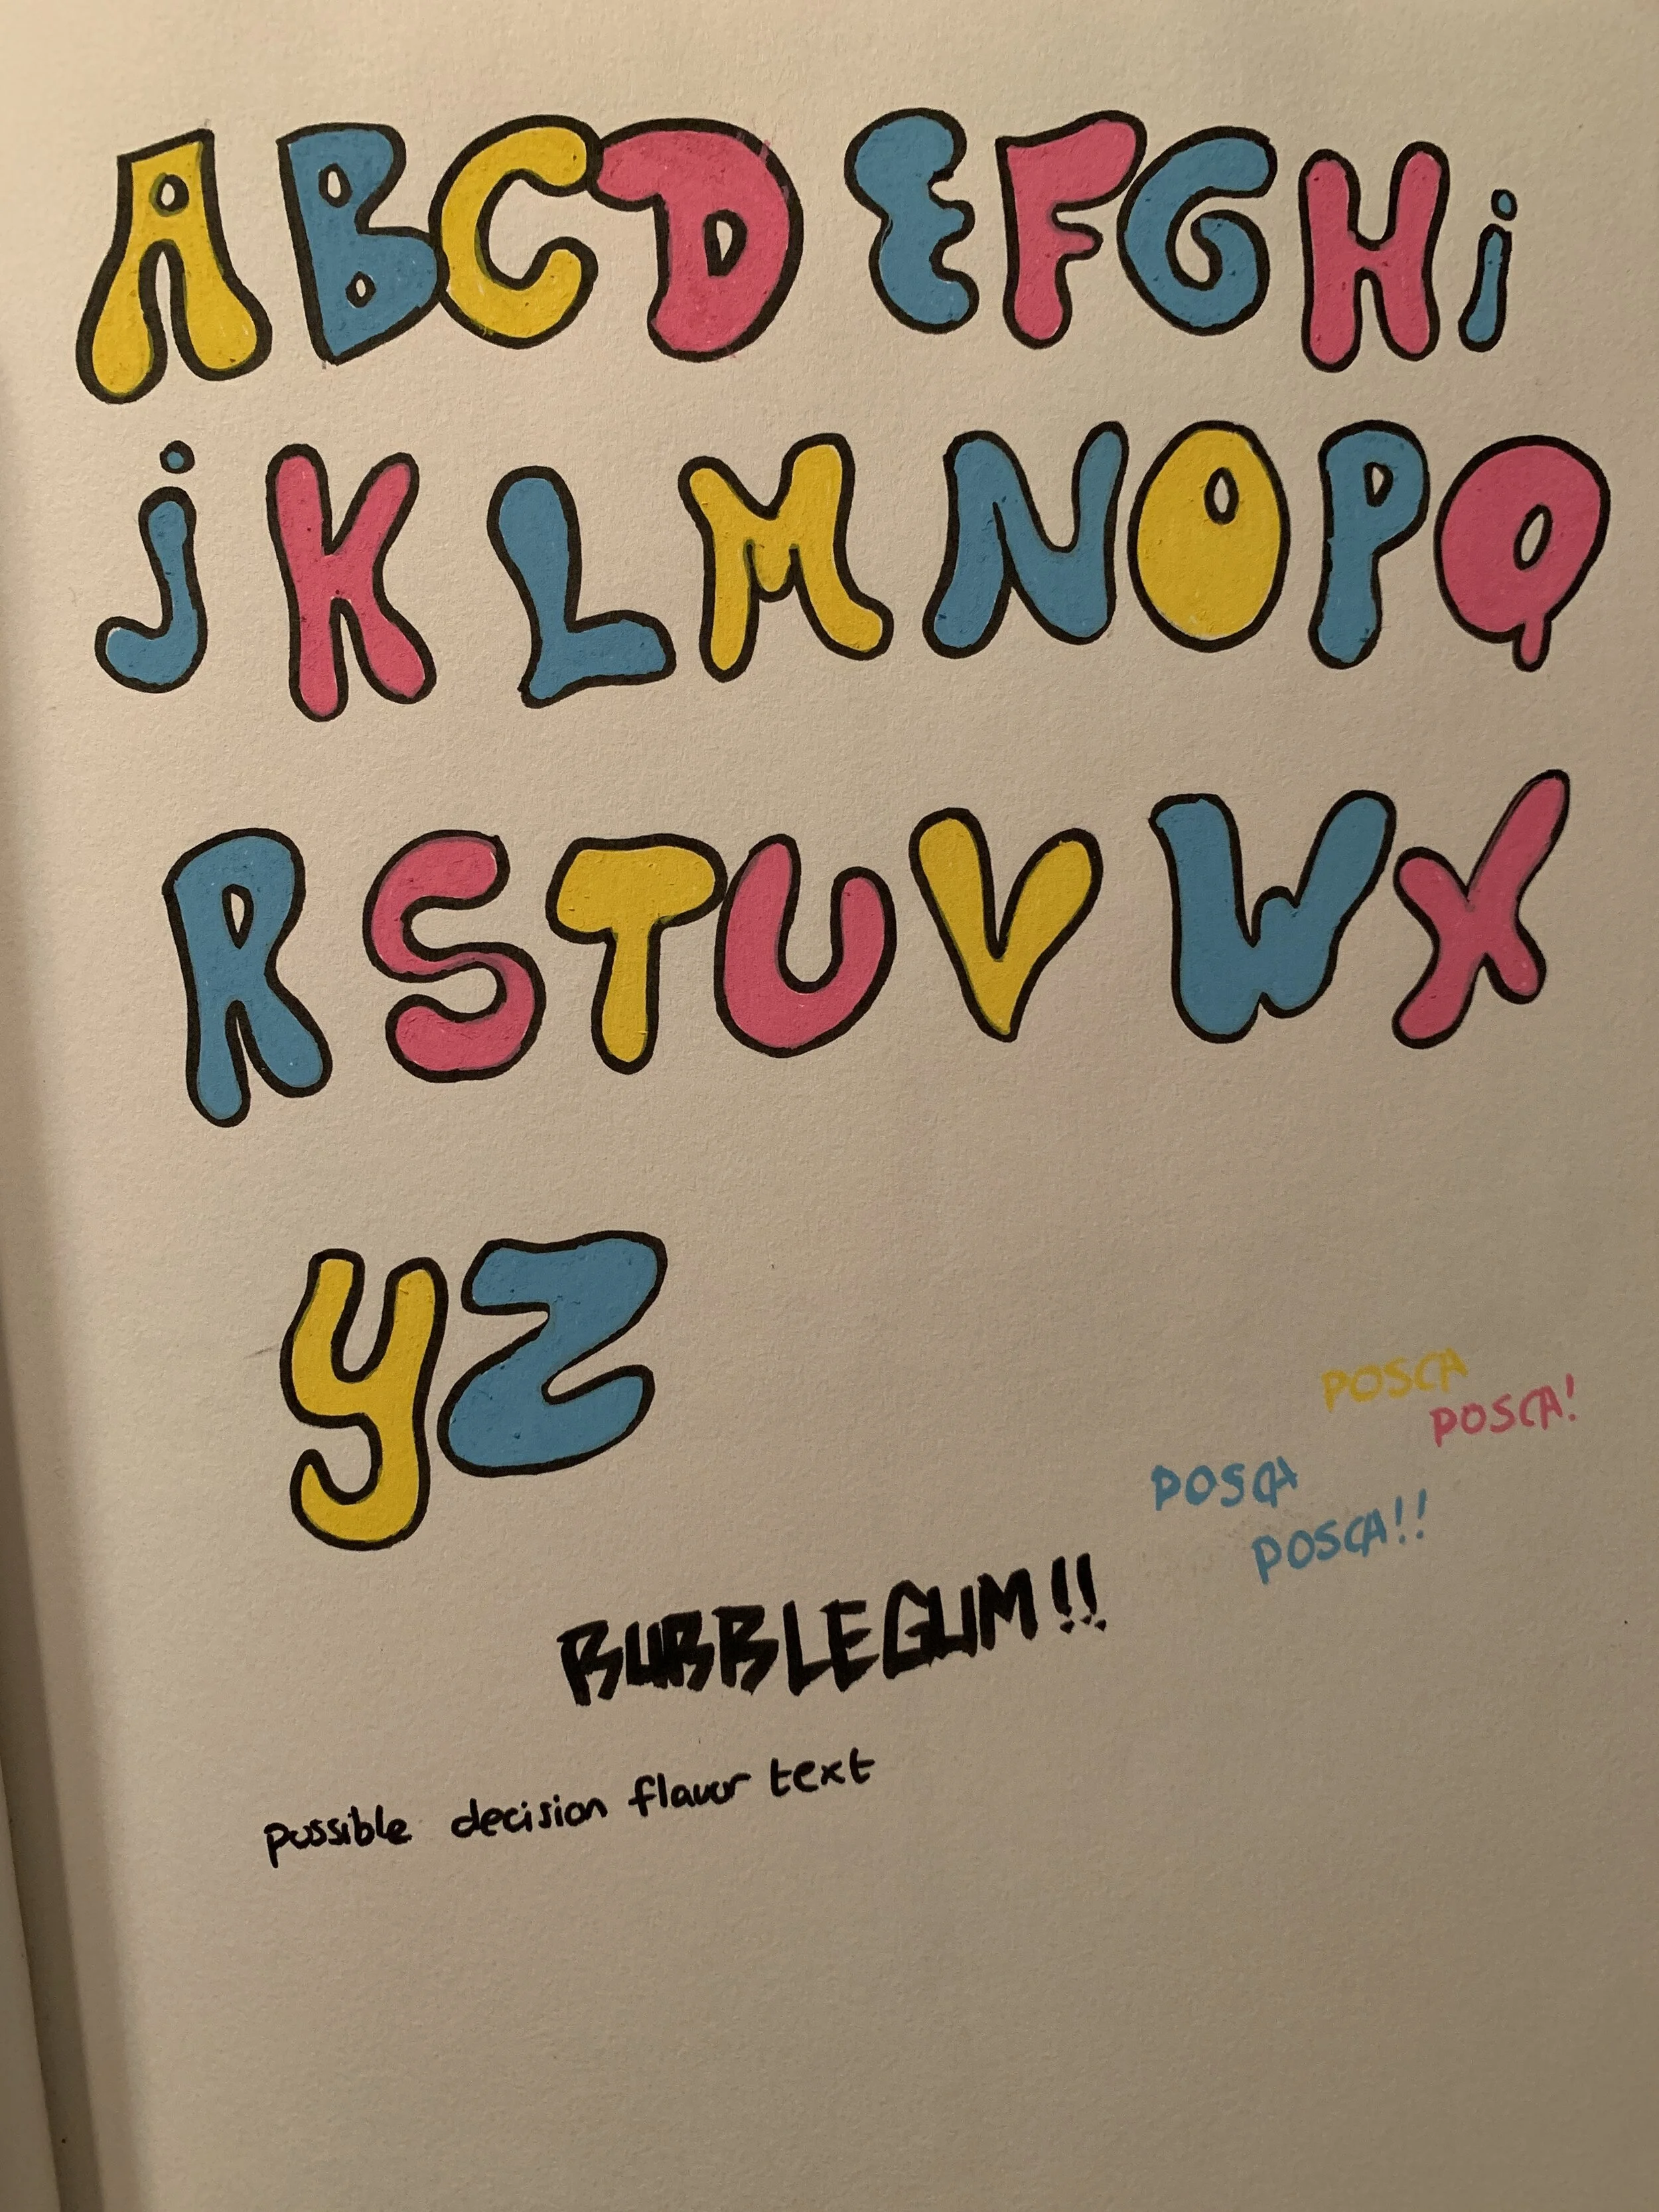 ABCDEFGHi
jKLMNOPQ
RSTUVWX
YZ
POSCA
POSCA!
POSCA
POSCA!!
BUBBLEGUM!!
possible decision flavor text